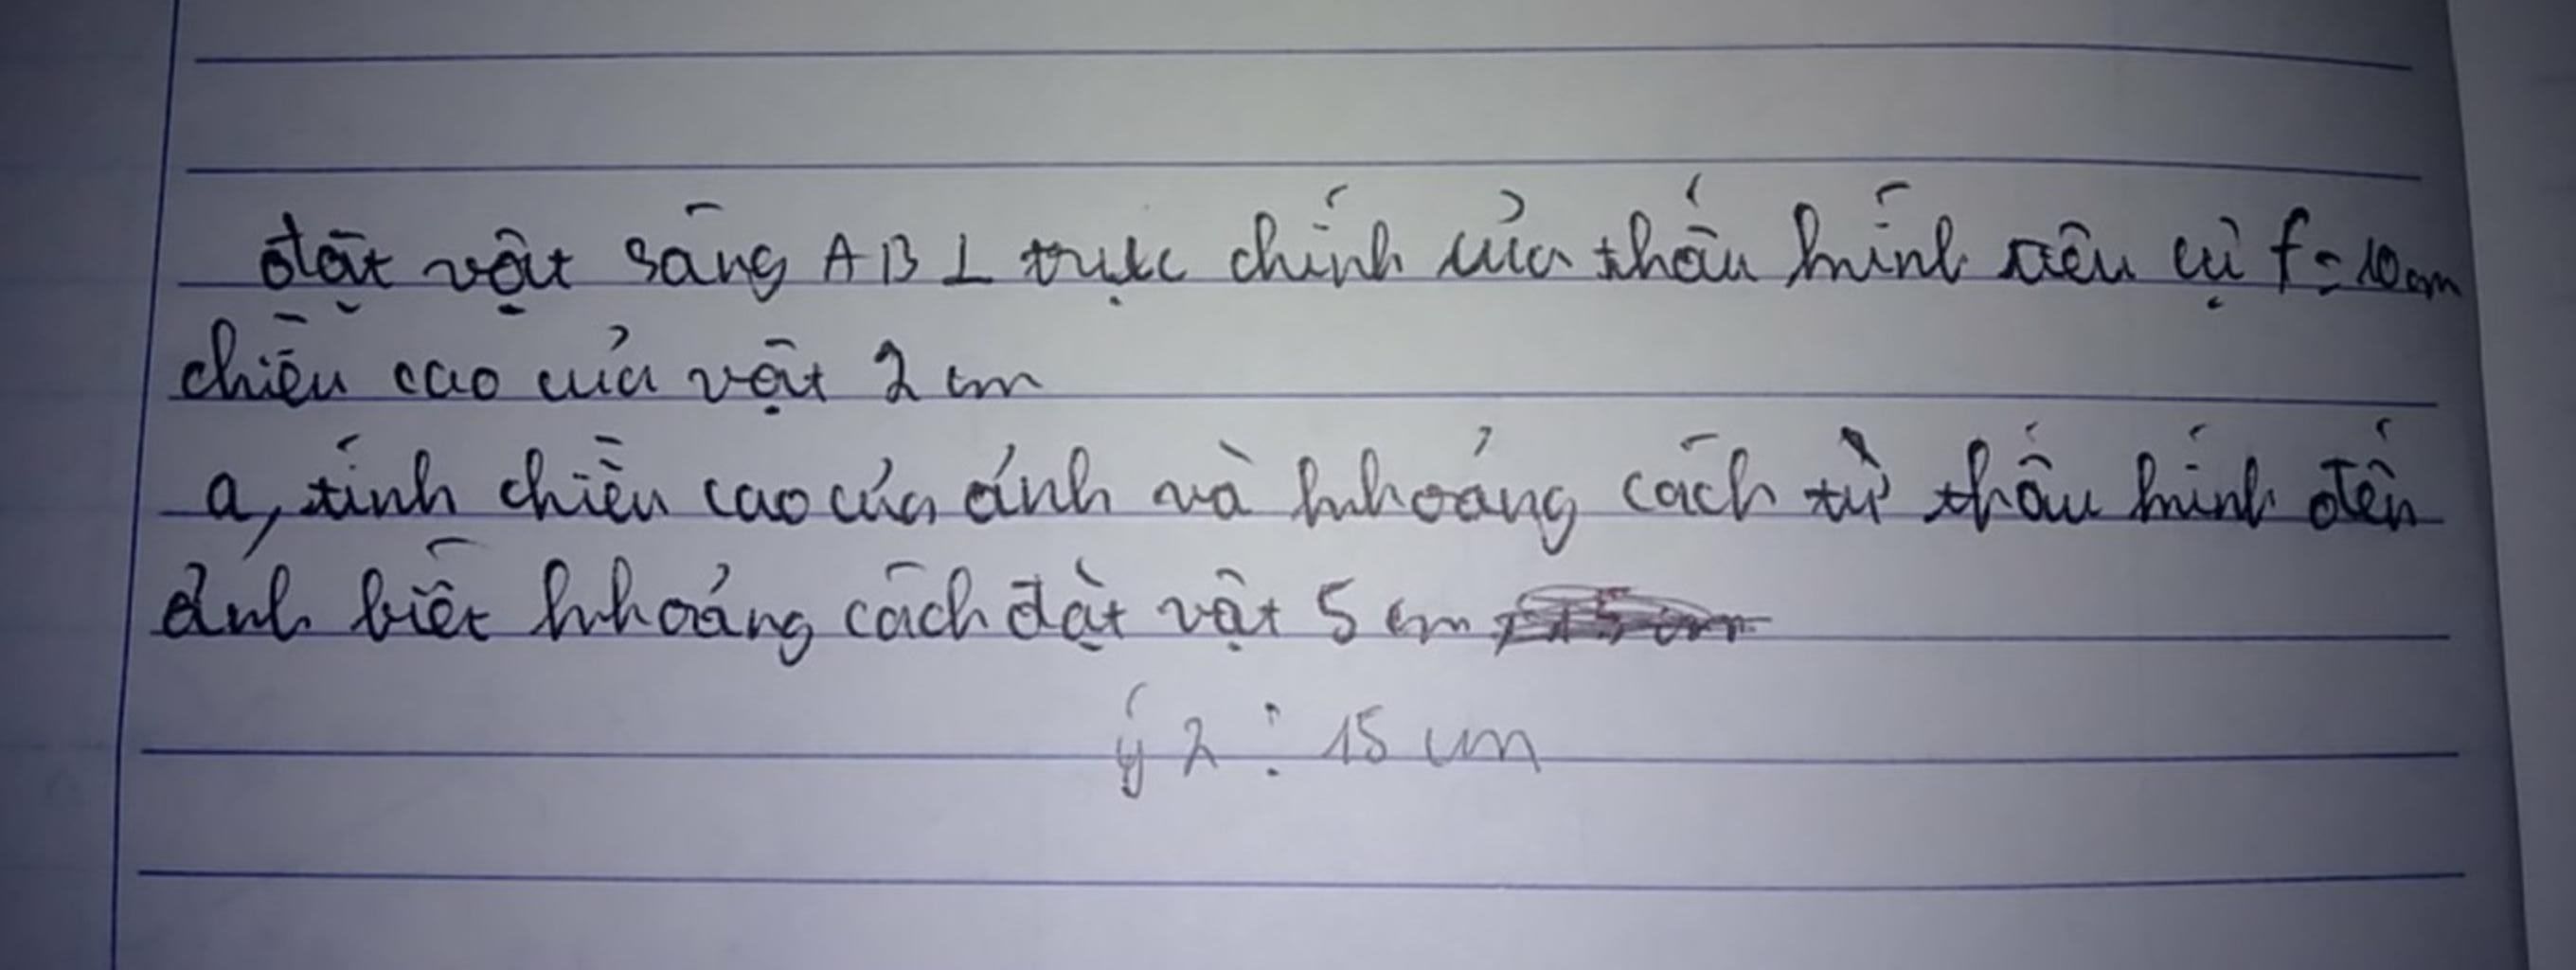 đặt vật sáng AB ⊥ trục chính của thấu kính tiêu cự f = 10cm
chiều cao của vật 2 cm
a, tính chiều cao của ảnh và khoảng cách từ thấu kính đến
ảnh biết khoảng cách đặt vật 5 cm
ý 2 : 15 cm